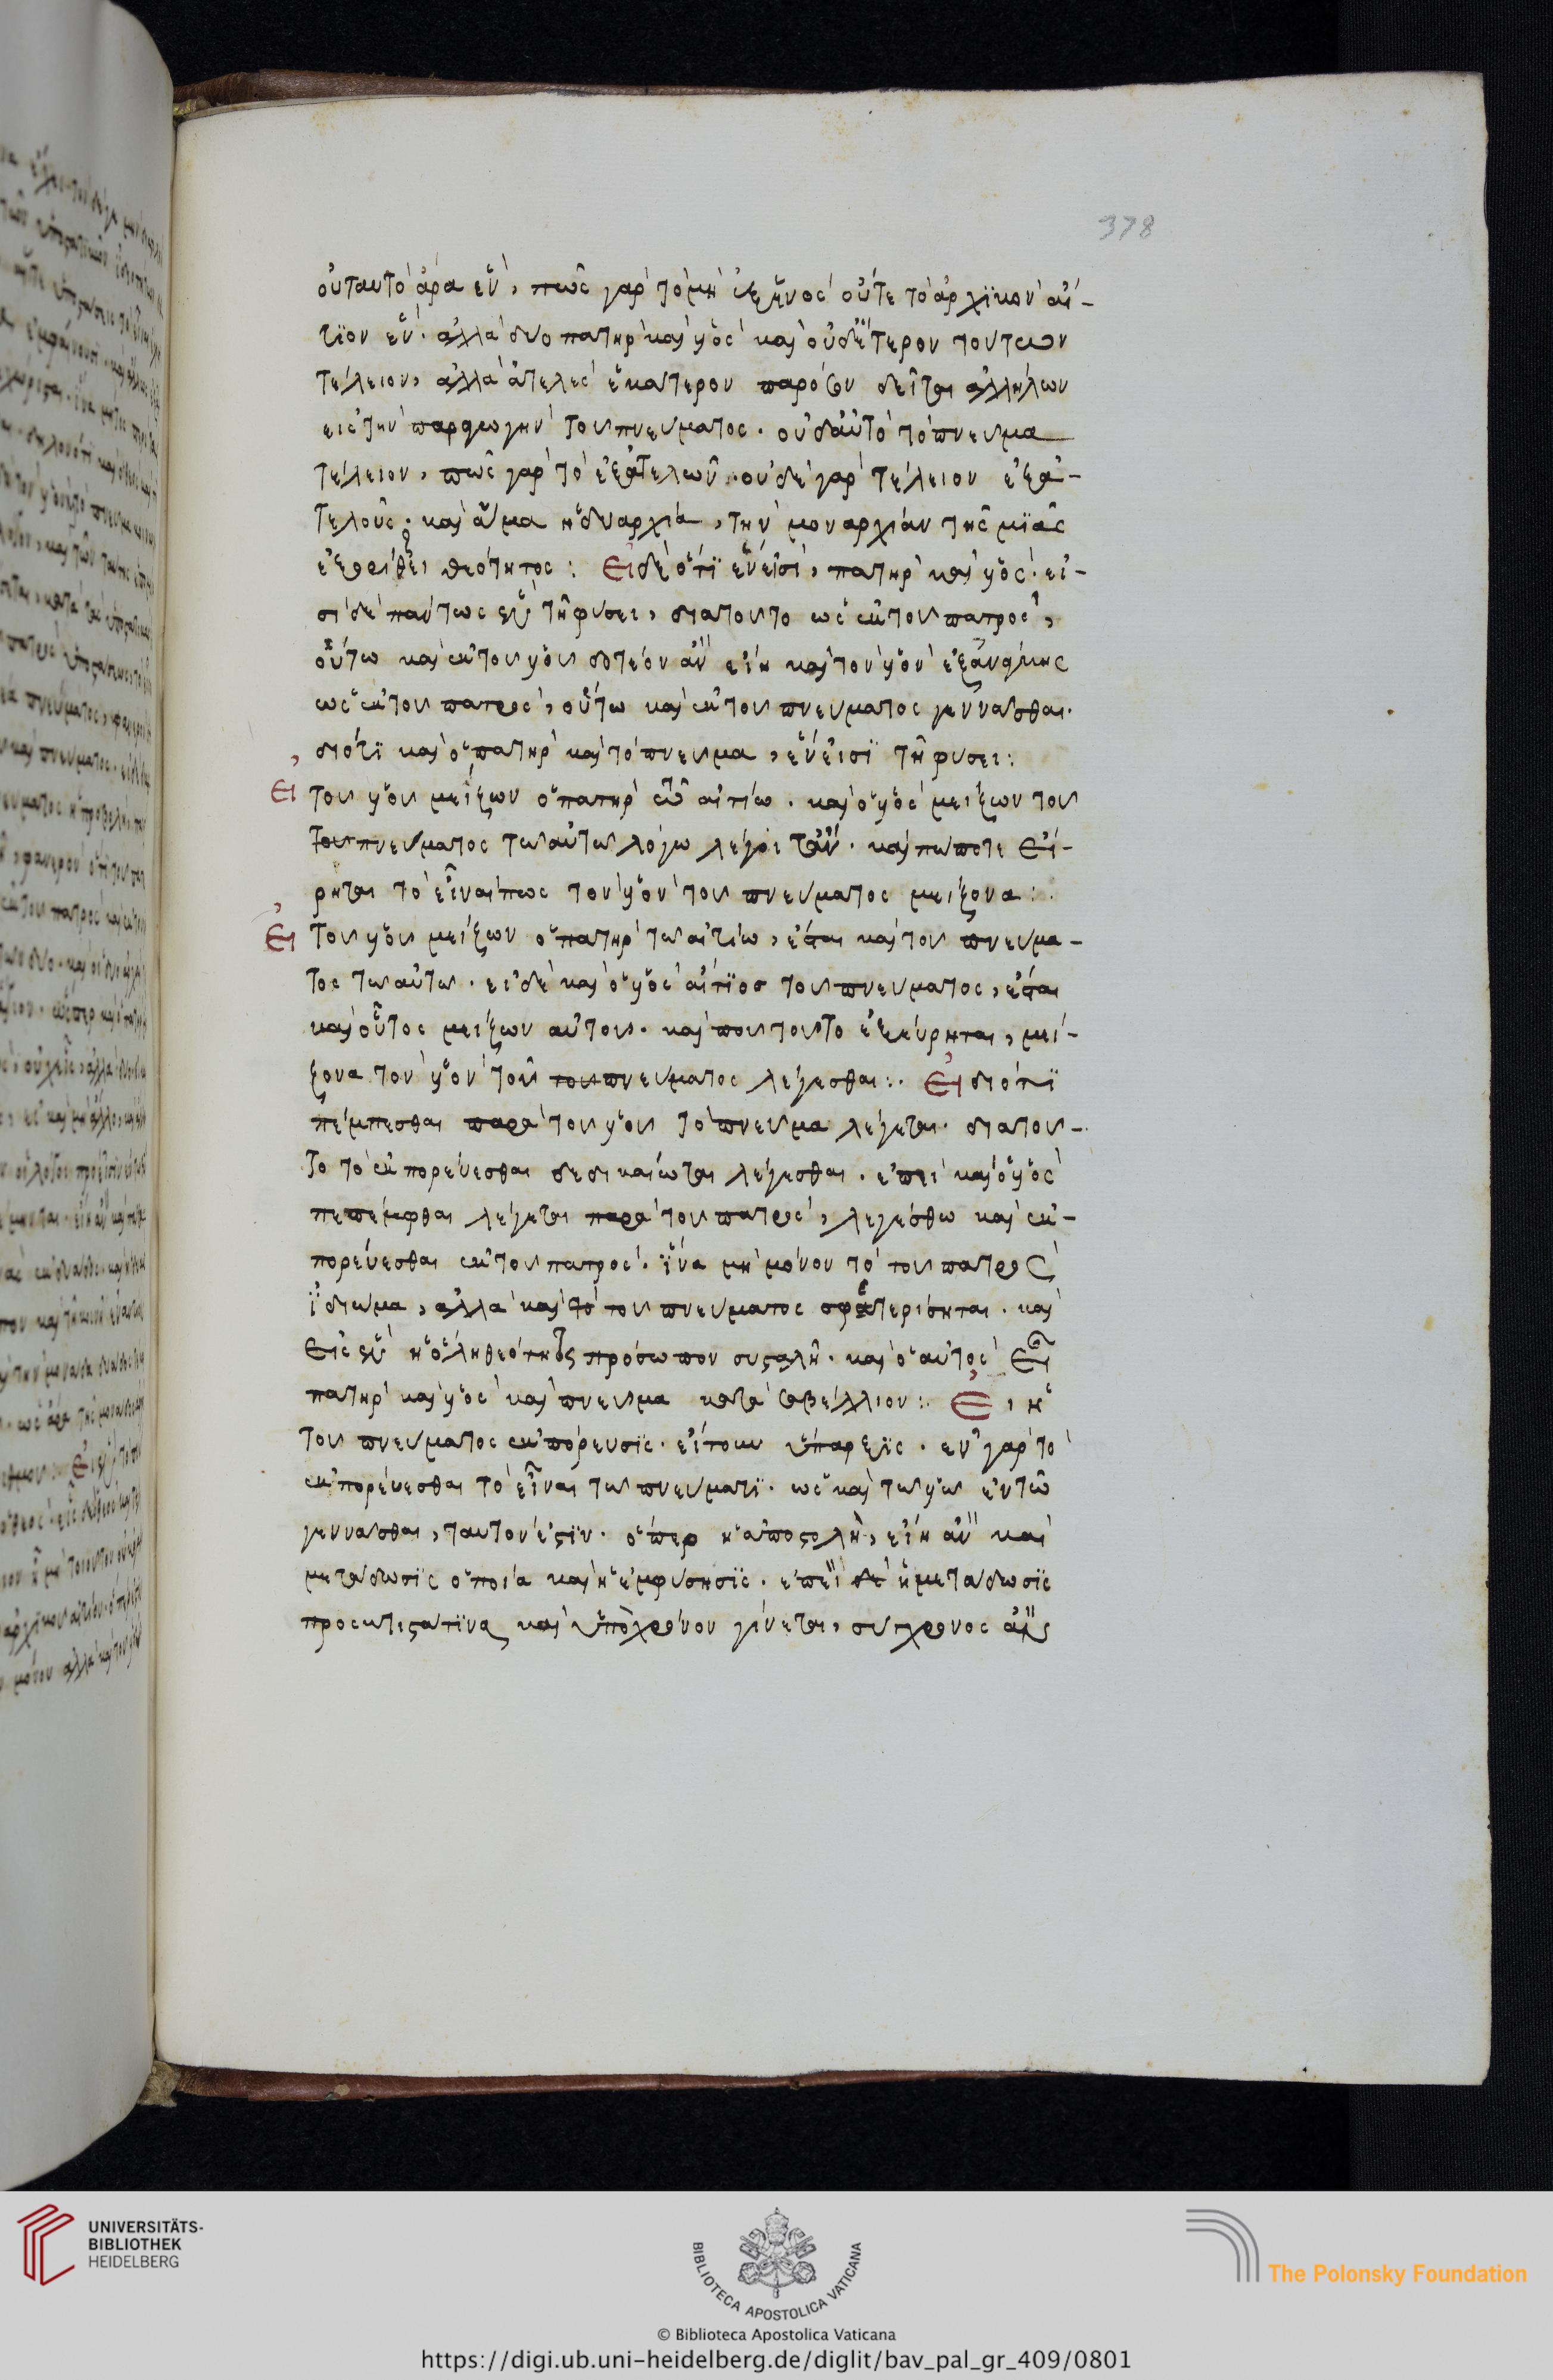 378
οὐ ταυτὸ ἄρα ἕν, πῶς γὰρ τὸ μὴ ἐξ ἑνὸς οὔτε τὸ ἀρχϊκὸν αἴ-
τϊον ἕν. ἀλλὰ δύο πατὴρ καὶ υἱὸς καὶ οὐδέτερον τούτων
τέλειον, ἀλλὰ ἀτελὲς ἑκάτερον παρόσον δεῖται ἀλλήλων
εἰς τὴν παραγωγὴν τοῦ πνεύματος. οὐδ' αὐτὸ τὸ πνεῦμα
τέλειον, πῶς γὰρ τὸ ἐξ ἀτελῶν. οὐδὲ γὰρ τέλειον ἐξ ἀ-
τελοῦς. καὶ ἅμα ἡ δυαρχία, τὴν μοναρχίαν τῆς μϊᾶς
θεότητος: Εἰ δὲ ὅτϊ ἕν εἰσι, πατὴρ καὶ υἱὸς. εἰ-
σὶ δὲ πάντως ἓν τῇ φύσει, διατοῦτο ὡς ἐκ τοῦ πατρὸς,
οὕτω καὶ ἐκ τοῦ υἱοῦ δοτέον ἂν εἴη καὶ τὸν υἱὸν ἐξ ἀνάγκης
ὡς ἐκ τοῦ πατρὸς, οὕτω καὶ ἐκ τοῦ πνεύματος γεννᾶσθαι.
διότϊ καὶ ὁ πατὴρ καὶ τὸ πνεῦμα, ἕν εἰσϊ τῇ φύσει:
Εἰ τοῦ υἱοῦ μείζων ὁ πατὴρ τῶ αἰτίω. καὶ ὁ υἱὸς μείζων τοῦ
τοῦ πνεύματος τῶ αὐτῶ λόγω λέγοιτ' ἄν. καὶ πώποτε εἴ-
ρηται τὸ εἶναι πως τὸν υἱὸν τοῦ πνεύματος μείζονα:
Εἰ τοῦ υἱοῦ μείζων ὁ πατὴρ τῶ αἰτίω, ἔσται καὶ τοῦ πνεύμα-
τος τῶ αὐτῶ. εἰ δὲ καὶ ὁ υἱὸς αἴτϊος τοῦ πνεύματος, ἔσται
καὶ οὗτος μείζων αὐτοῦ. καὶ ποῦ τοῦτο ἐξεύρηται, μεί-
ζονα τὸν υἱὸν τοῦ τοῦ πνεύματος λέγεσθαι:. Εἰ διότϊ
πέμπεσθαι παρὰ τοῦ υἱοῦ τὸ πνεῦμα λέγεται. διατοῦ-
το τὸ ἐκπορεύεσθαι δεδικαίωται λέγεσθαι. ἐπεὶ καὶ ὁ υἱὸς
πεπέμφθαι λέγεται παρὰ τοῦ πατρὸς, λεγέσθω καὶ ἐκ-
πορεύεσθαι ἐκ τοῦ πατρὸς. ἵνα μὴ μόνον τὸ τοῦ πατρὸς
ἰδίωμα, ἀλλὰ καὶ τὸ τοῦ πνεύματος σφετερίσηται. καὶ
εἰς ἓν ἡ ὅλη θεότης πρόσωπον συσταλῇ. καὶ ὁ αὐτὸς
πατὴρ καὶ υἱὸς καὶ πνεῦμα κατὰ σαβέλλιον:. Εἰ ἡ
τοῦ πνεύματος ἐκπόρευσϊς. εἴτουν ὕπαρξϊς. ἐν γὰρ τὸ
ἐκπορεύεσθαι τὸ εἶναι τῶ πνεύματϊ. ὡς καὶ τῶ υἱῶ ἐν τῶ
γεννᾶσθαι, ταυτόν ἐστϊν. ὅπερ ἡ ἀποστολὴ, εἴη ἂν καὶ
μετάδωσϊς ὁποία καὶ ἡ ἐμφύσησϊς. ἐπεὶ δὲ ἡ μετάδωσϊς
πρὸς κτιστά τϊνα καὶ ὑπὸ χρόνον γίνεται, σύγχρονος
UNIVERSITÄTS-
BIBLIOTHEK
HEIDELBERG
BIBLIOTECA APOSTOLICA VATICANA
The Polonsky Foundation
© Biblioteca Apostolica Vaticana
https://digi.ub.uni-heidelberg.de/diglit/bav_pal_gr_409/0801